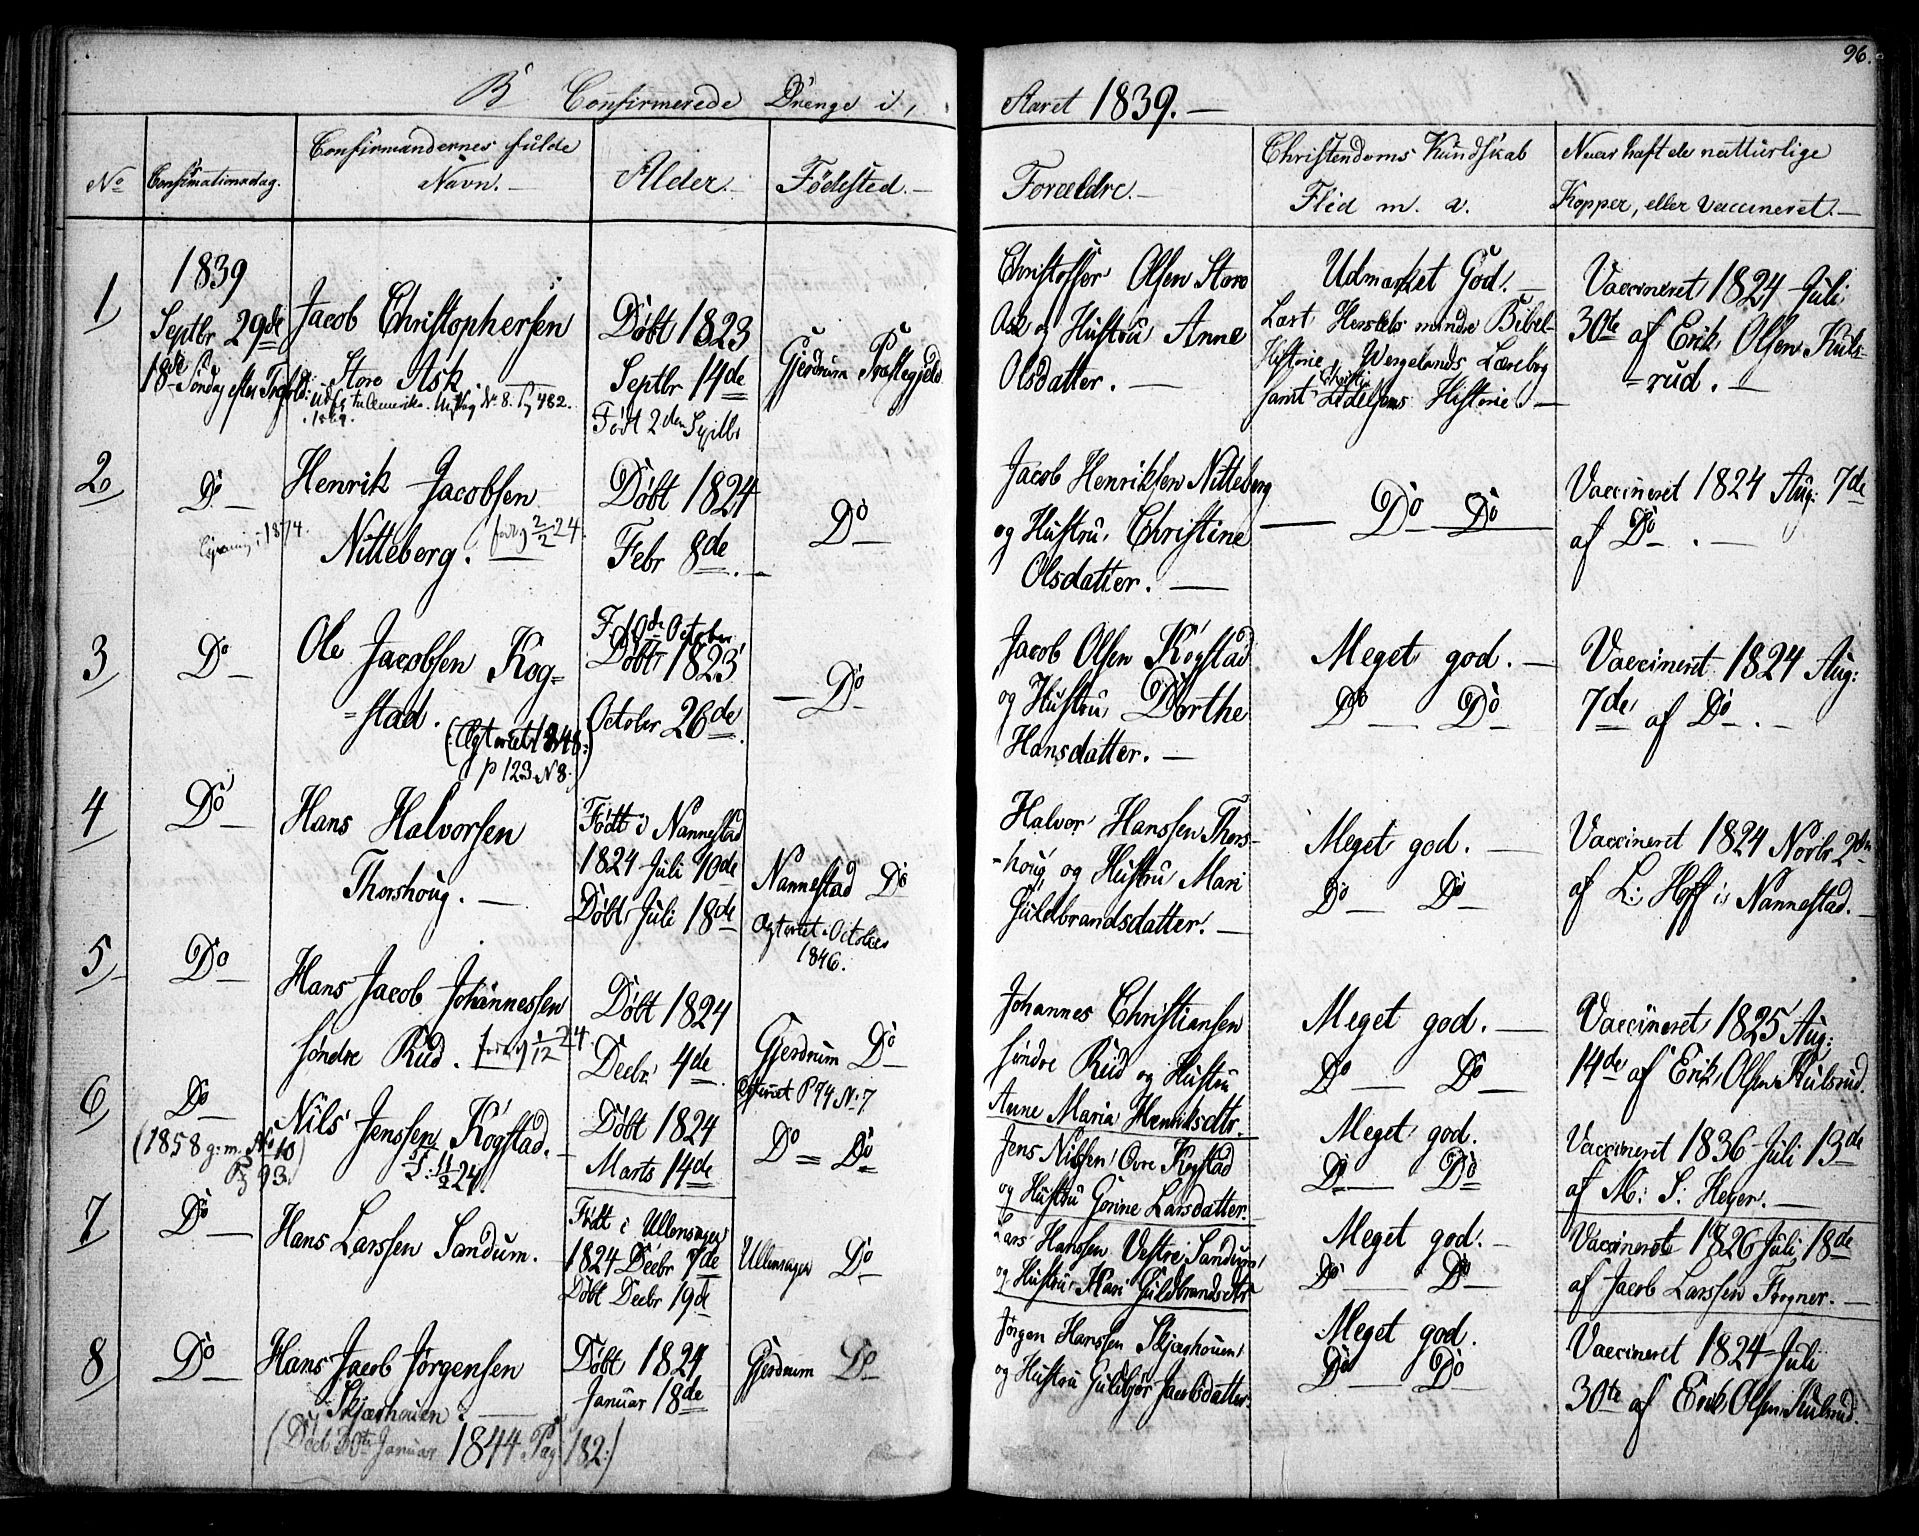 96.
B Confirmerede Drenge i, Aaret 1839. —
No
Confirmationsdag.
Confirmandernes fulde
Navn. —
Alder. —
Fødested. —
Forældre. —
Christendoms Kundskab
Flid m. v.
Naar haft de natturlige
Kopper, eller vaccineret. —
1,
1839
Septbr 29de
18de Søndag efter
Jacob Christophersen
Store Ask
til Amerika. No 8. 482.
1869.
Døbt 1823
Septbr 14de
Født 2den Septbr
Gjerdrum Præstegjeld
Christoffer Olsen Store
Ask og Hustru Anne
Olsdatter. —
Udmærket God. —
Læst Herslebs mindre Bibel-
Historie, Wergelands Lærebog
samt Christi Lidelses Historie. —
Vaccineret 1824 Juli
30te af Erik Olsen Kuls-
=rud. —
2,
Do —
i 1874.
Henrik Jacobsen
Nitteberg. 2/2 24.
Døbt 1824
Febr 8de. —
Do —
Jacob Henriksen Nitteberg
og Hustru Christine
Olsdatter. —
— Do — Do —
Vaccineret 1824 Aug: 7de
af Do — . —
3,
Do —
Ole Jacobsen Kog=
=stad.
(Ægteviet 1848:)
p 123 N 8.
F. 10de October
Døbt 1823
October 26de.
— Do —
Jacob Olsen Kogstad
og Hustru Dorthe
Hansdatter. —
Meget god. —
Do — Do —
Vaccineret 1824 Aug:
7de af Do — . —
4,
Do —
Hans Halvorsen
Thorshoug. —
Født i Nannestad
1824 Juli 10de
Døbt Juli 18de
Nannestad Do —
Ægteviet October
1846.
Halvor Hanssen Thors-
-houg, og Hustru Mari
Guldbrandsdatter. —
Meget god. —
Do — Do —
Vaccineret 1824 Novbr 2den
af L: Hoff i Nannestad. —
5,
Do —
Hans Jacob Johannessen
søndre Rud. 1/12 24.
Døbt 1824
Decbr 4de
Gjerdrum Do —
P 74 No 7
Johannes Christiansen
søndre Rud og Hustru
Anne Maria Henriksdtr.
Meget god. —
Do — Do —
Vaccineret 1825 Aug:
14de af Erik Olsen Kulsrud.
6,
Do —
(1858 g: m. No 10
P 93.)
Nils Jenssen Kogstad. —
f: 11/2 24.
Døbt 1824
Marts 14de
Do = Do =
Jens Nilssen Øvre Kogstad
og Hustru Gorine Larsdatter.
Meget god.
Do — Do
Vaccineret 1836 Juli 13de
af M: S: Heyer. —
7,
Do —
Hans Larssen Sandum. —
Født i Ullensager
1824 Decbr 7de
Døbt Decbr 19de
Ullensager Do —
Lars Hanssen Vestre Sandum
og Hustru Kari Guldbrandsdtr
Meget god. —
Do — Do —
Vaccineret 1826 Juli 18de
af Jacob Larssen Frogner. —
8,
Do —
Hans Jacob Jørgensen
Skjæshouen. —
(Død 30te Januar 1844 Pag: 182:)
Døbt 1824
Januar 18de
Gjerdrum Do —
Jørgen Hanssen Skjæshouen
og Hustru Guldbjør Jacobsdatter.
Meget god.
Do — Do —
Vaccineret 1824 Juli
30te af Erik Olsen Kulsrud.